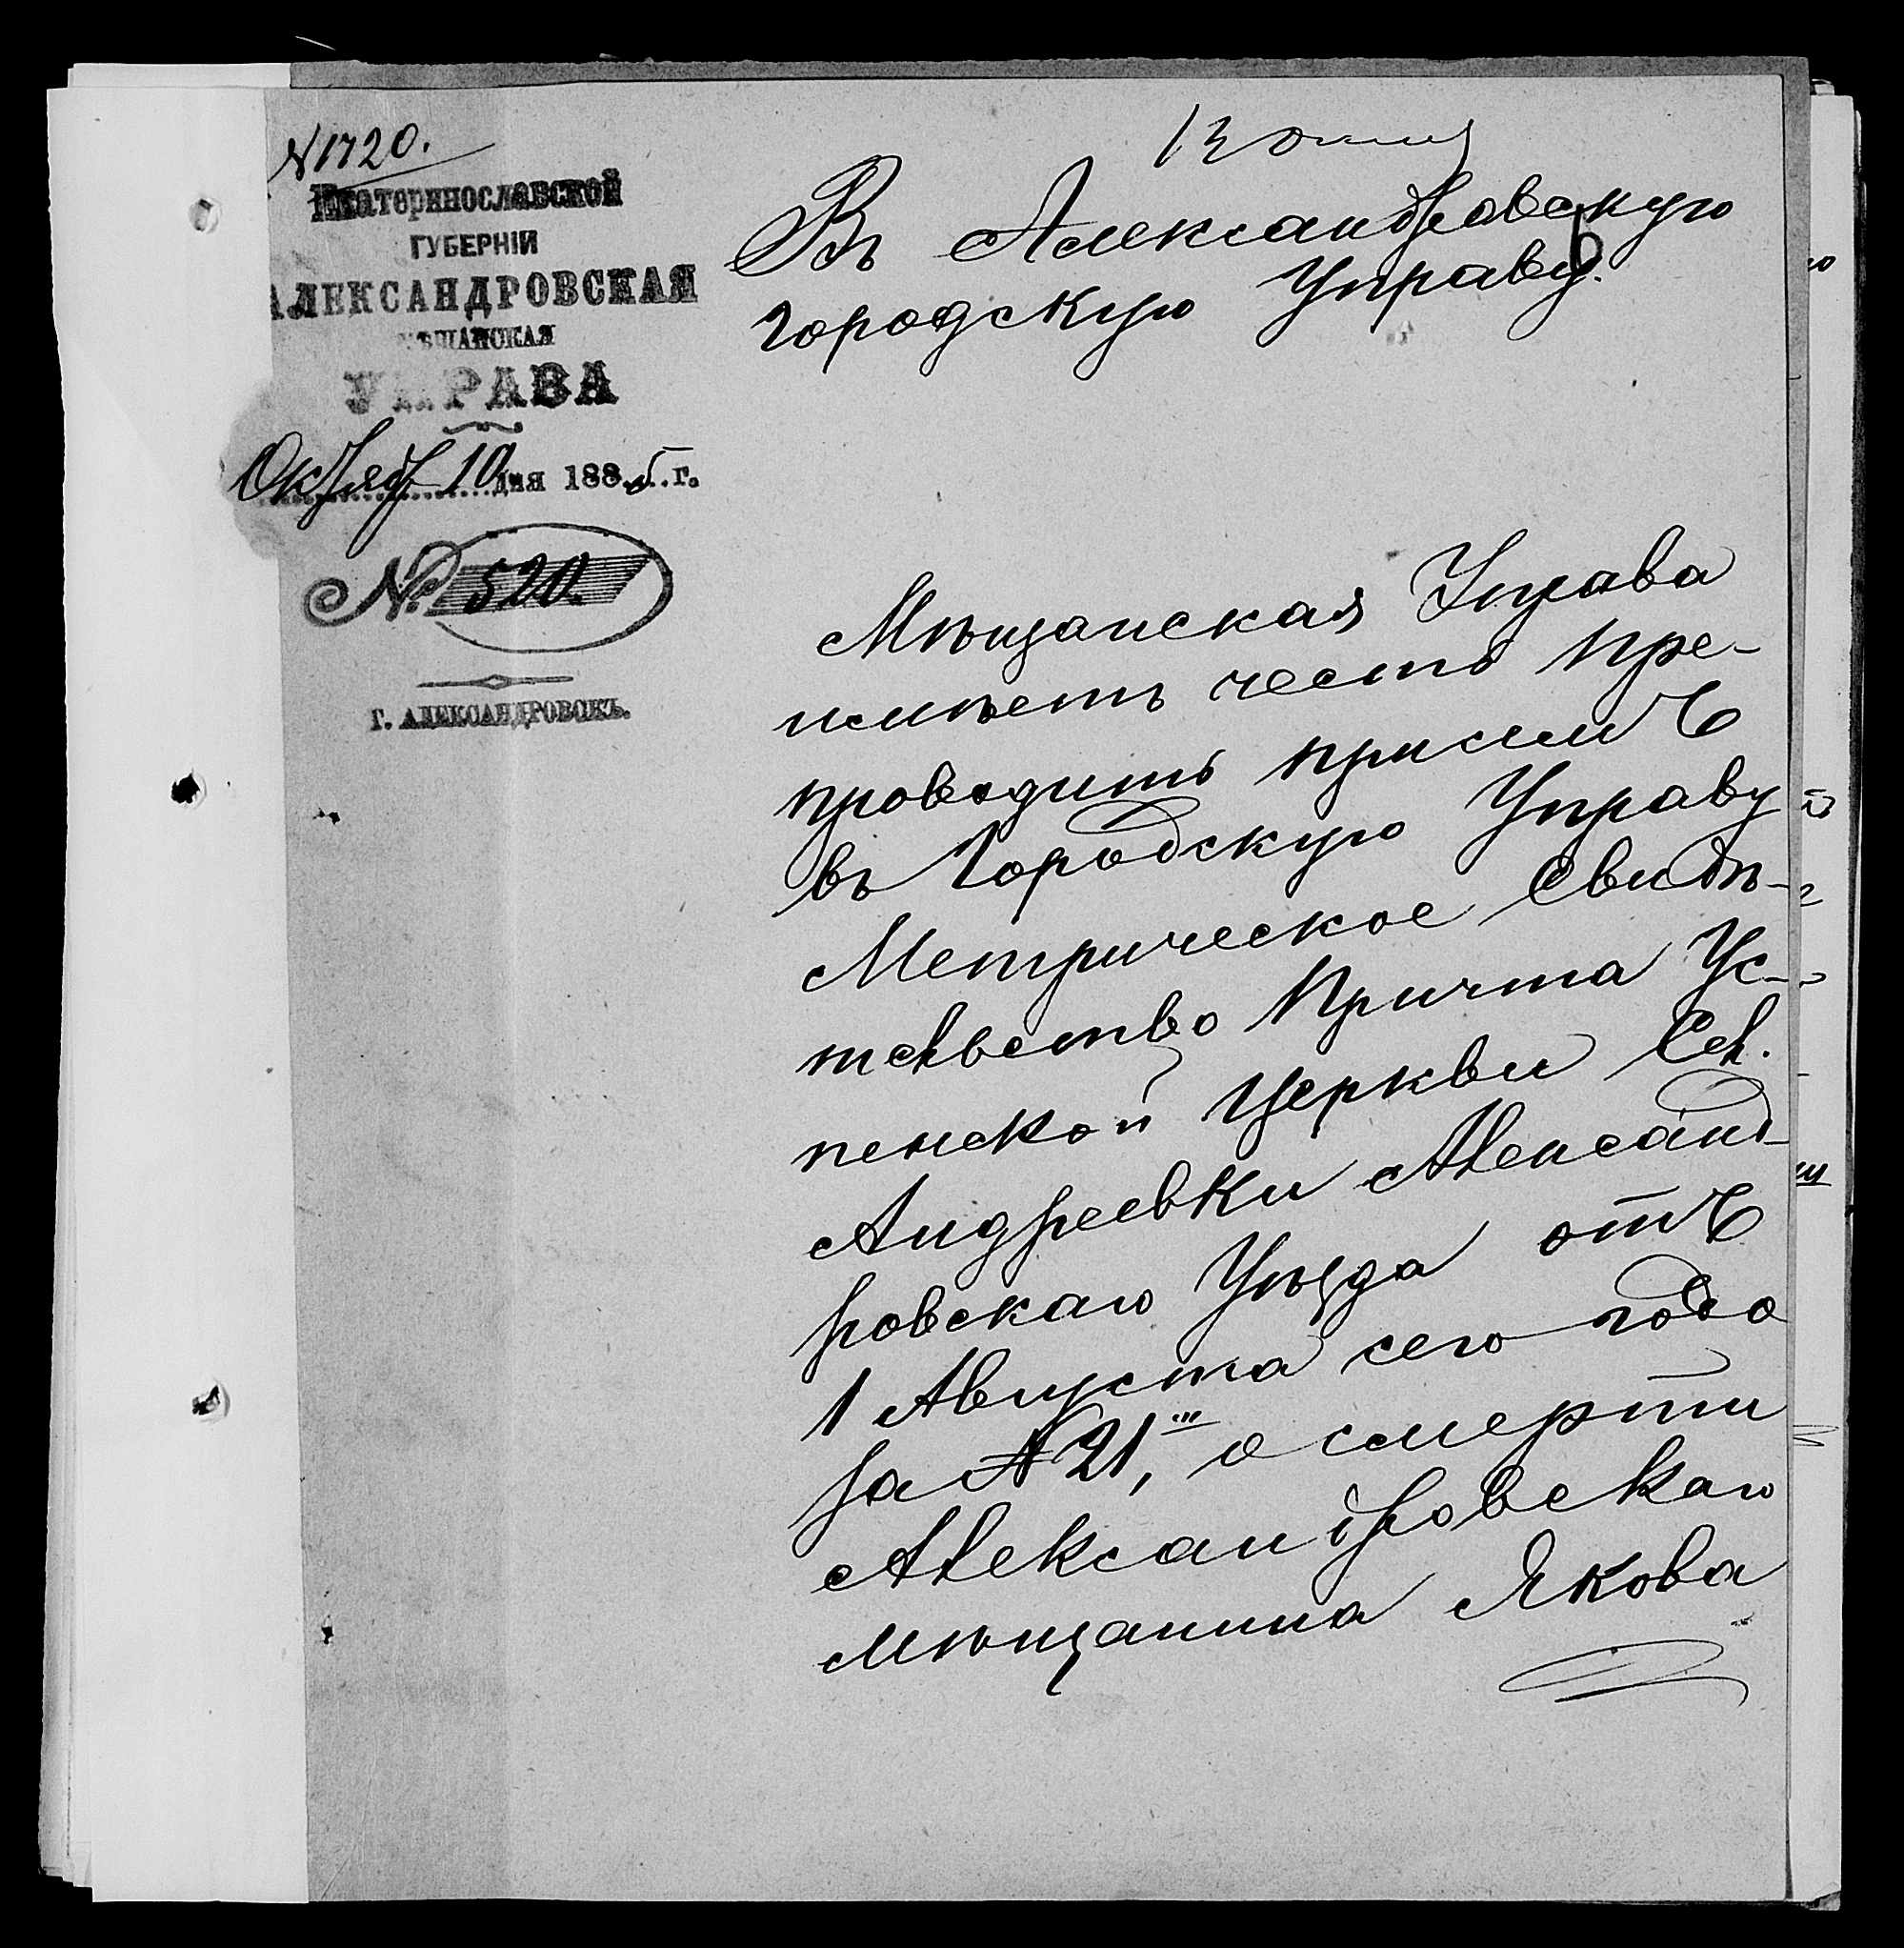 N 1720.
Екатеринославской
ГУБЕРНІИ
АЛЕКСАНДРОВСКАЯ
МѢЩАНСКАЯ
УПРАВА
Октября 10 дня 1885 г.
№ 520.
Г. АЛЕКСАНДРОВСКЪ.
13
Въ Александровскую
Городскую Управу.
Мѣщанская Управа
имѣетъ честь пре-
проводить при семъ
въ Городскую Управу
Метрическое Свидѣ-
тельство Причта Ус-
пенской Церкви Сел.
Андреевки Александ-
ровскаго Уѣзда отъ
1 Августа сего года
за № 21, о смерти
Александровскаго
мѣщанина Якова